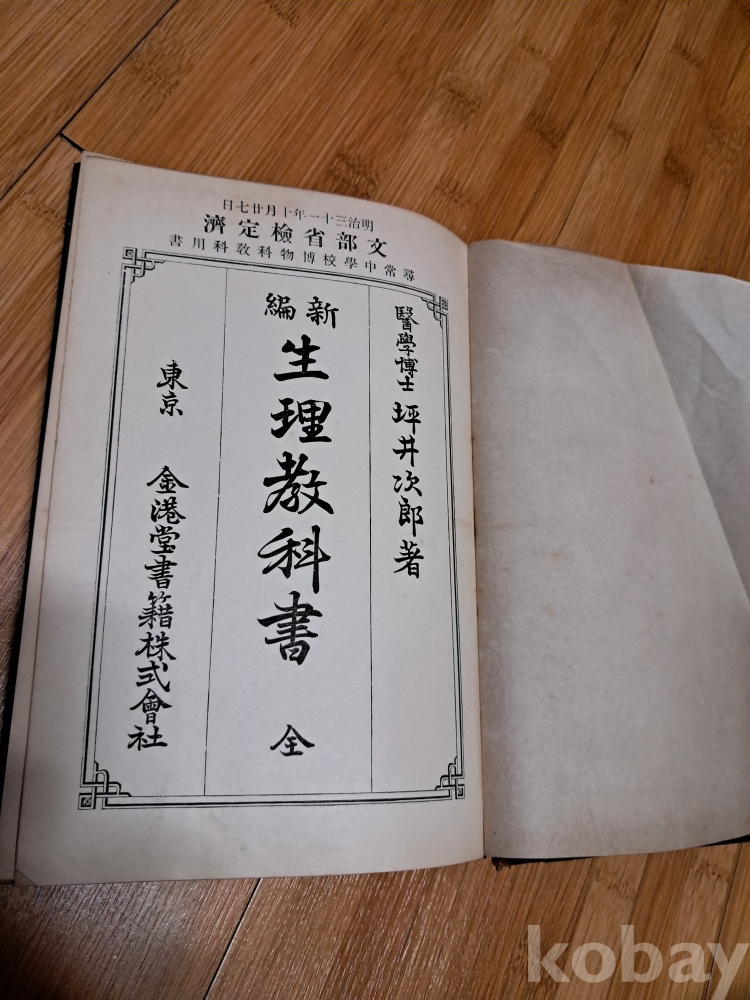 明治三十一年十月廿七日
文部省檢定濟
尋常中學校博物科教科用書
醫學博士 坪井次郎著
新編
生理教科書 全
東京 金港堂書籍株式會社
kobay